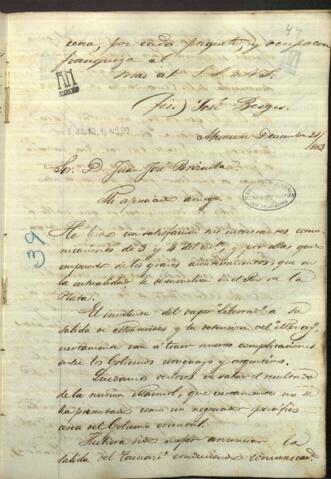 44
cena, por cada paquete, y ocupe con
franqueza al
mas at.º S. S. Q. B. S. M.
(fir.) José Berges.
I 22,12,1, Nº 39
Asuncion Diciembre 21/863
Sor. D. Juan José Brizuela.
Mi apreciado amigo.
39
He leido con satisfaccion sus interesantes comu
nicaciones de 3 y 4 del cte., y por ellas quedo
impuesto de los graves acontecimientos, que en
la actualidad se desenvuelven en el Rio de la
Plata.
El incidente del vapor "Libertad" a su
salida de Montevideo y la detencion del Mercey,
ciertamente van á traer nuevas complicaciones
entre los Gobiernos uruguayo y argentino.
Quedamos deseosos de saber el resultado
de la mision Marmol, que ciertamente no se
ha presentado como un negociador pacífico
cerca del Gobierno oriental.
Hubiera sido mejor anunciar la
salida del "Tacuari" conduciendo comunicac.